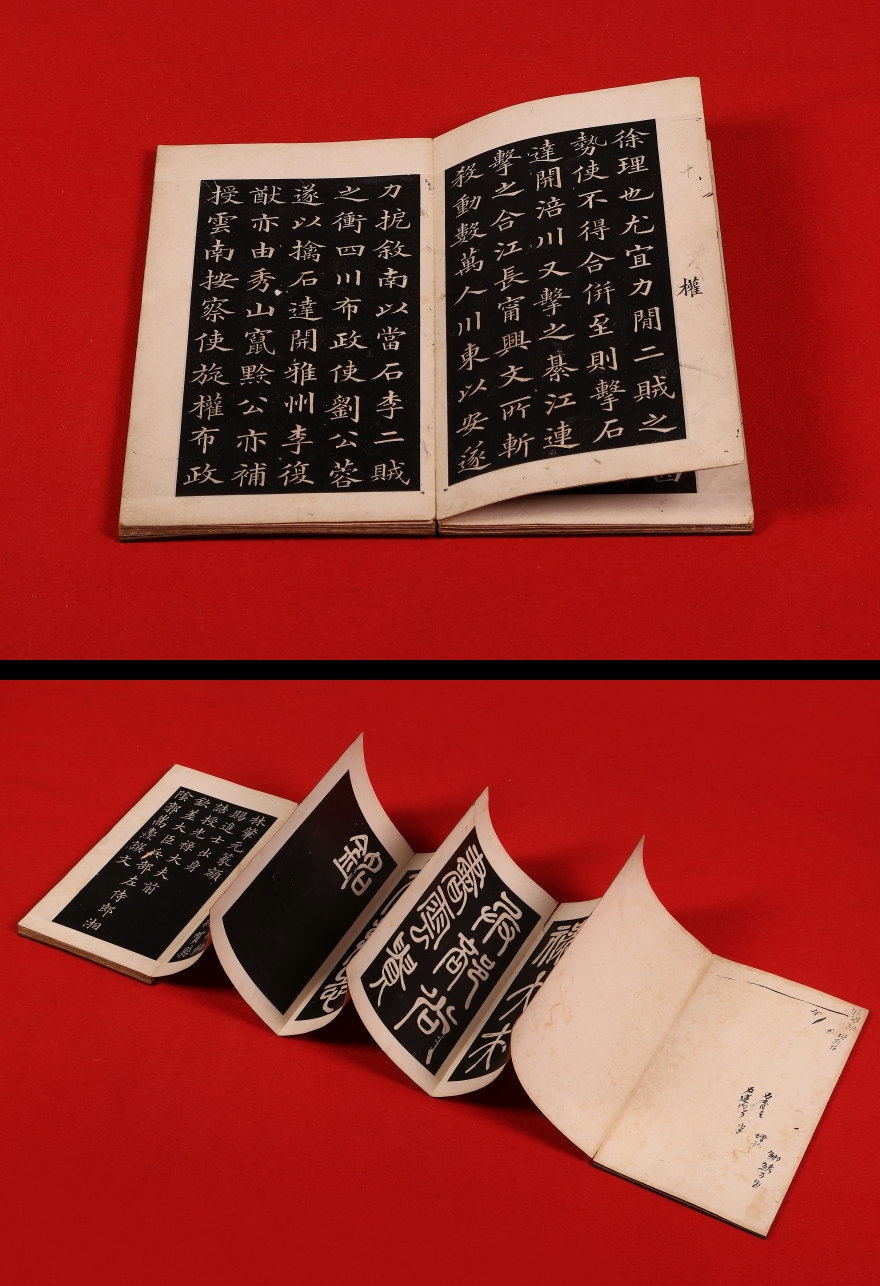 權
徐理也尤宜力閒二賊之
勢使不得合併至則擊石
達開涪川又擊之綦江連
擊之合江長甯興文所斬
殺動數萬人川東以安遂
力扼敘南以當石李二賊
之衝四川布政使劉公蓉
遂以擒石達開雅州李復
猷亦由秀山竄黔公亦補
授雲南按察使旋權布政
書雲貴
銘
林肇元篆額
賜進士出身
誥授光祿大夫前
欽差大臣兵部左侍郎湘
陰郭嵩燾譔文